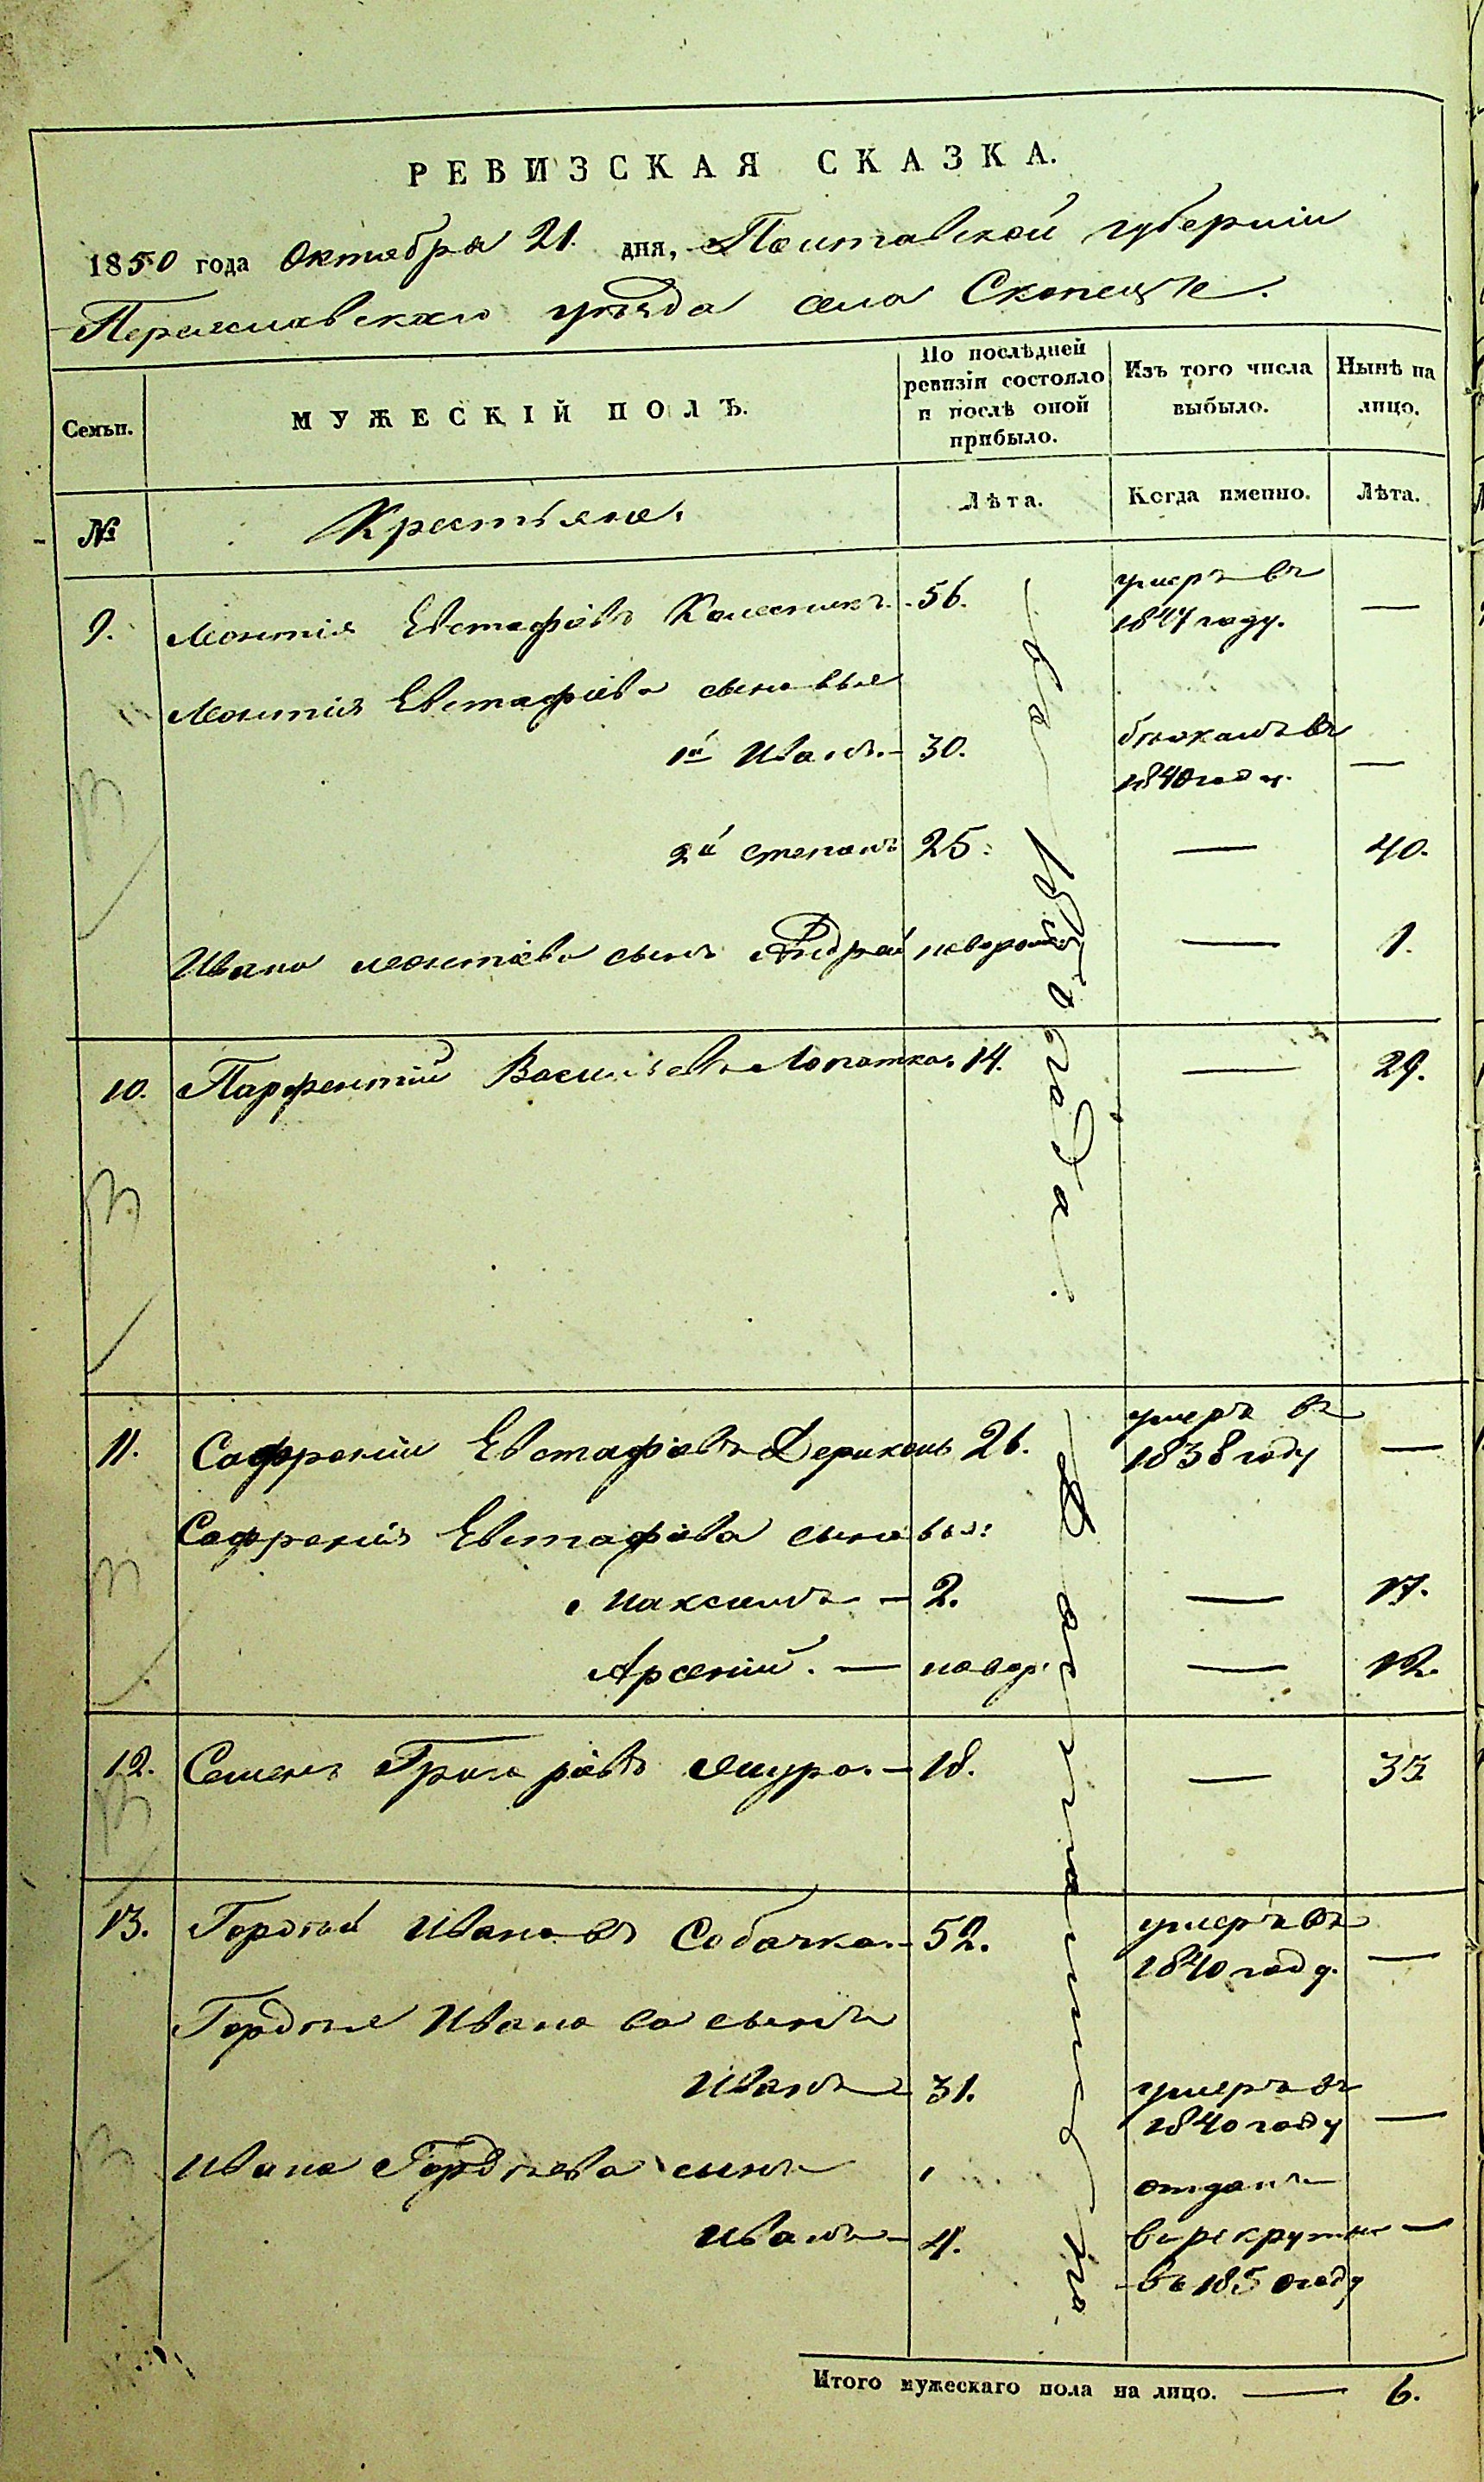 РЕВИЗСКАЯ СКАЗКА.
1850 года Октября 21. дня, Полтавской губерніи
Переяславскаго уѣзда села Скопецъ.
Семьи.
МУЖЕСКІЙ ПОЛЪ.
По послѣдней ревизіи состояло и послѣ оной прибыло.
Изъ того числа выбыло.
Нынѣ на лицо.
№
Крестьяне.
Лѣта.
Когда именно.
Лѣта.
9. Леонтій Евстафіевъ Колесникъ. 56. умеръ въ 1847 году. —
Леонтія Евстафіева сыновья
1й Иванъ. — 30. бѣжалъ въ 1840 году. —
2й Степанъ 25. — 40.
Ивана Леонтіева сынъ Андрей новорож — 1.
10. Парфентій Васильевъ Лопатка. 14. — 29.
11. Софроній Евстафіевъ Дериконь 26. умеръ въ 1838 году —
Софронія Евстафіева сыновья:
Максимъ — 2. — 17.
Арсеній. — новор. — 12.
12. Семенъ Григоріевъ — 18. — 33
13. Гордѣй Ивановъ Собачка. — 52. умеръ въ 1840 году. —
Гордѣя Иванова сынъ
Иванъ 31. умеръ въ 1840 году —
Ивана Гордѣева сынъ
Иванъ — 4. отданъ въ рекруты въ 1850 году —
1850 года.
Итого мужескаго пола на лицо. — 6.